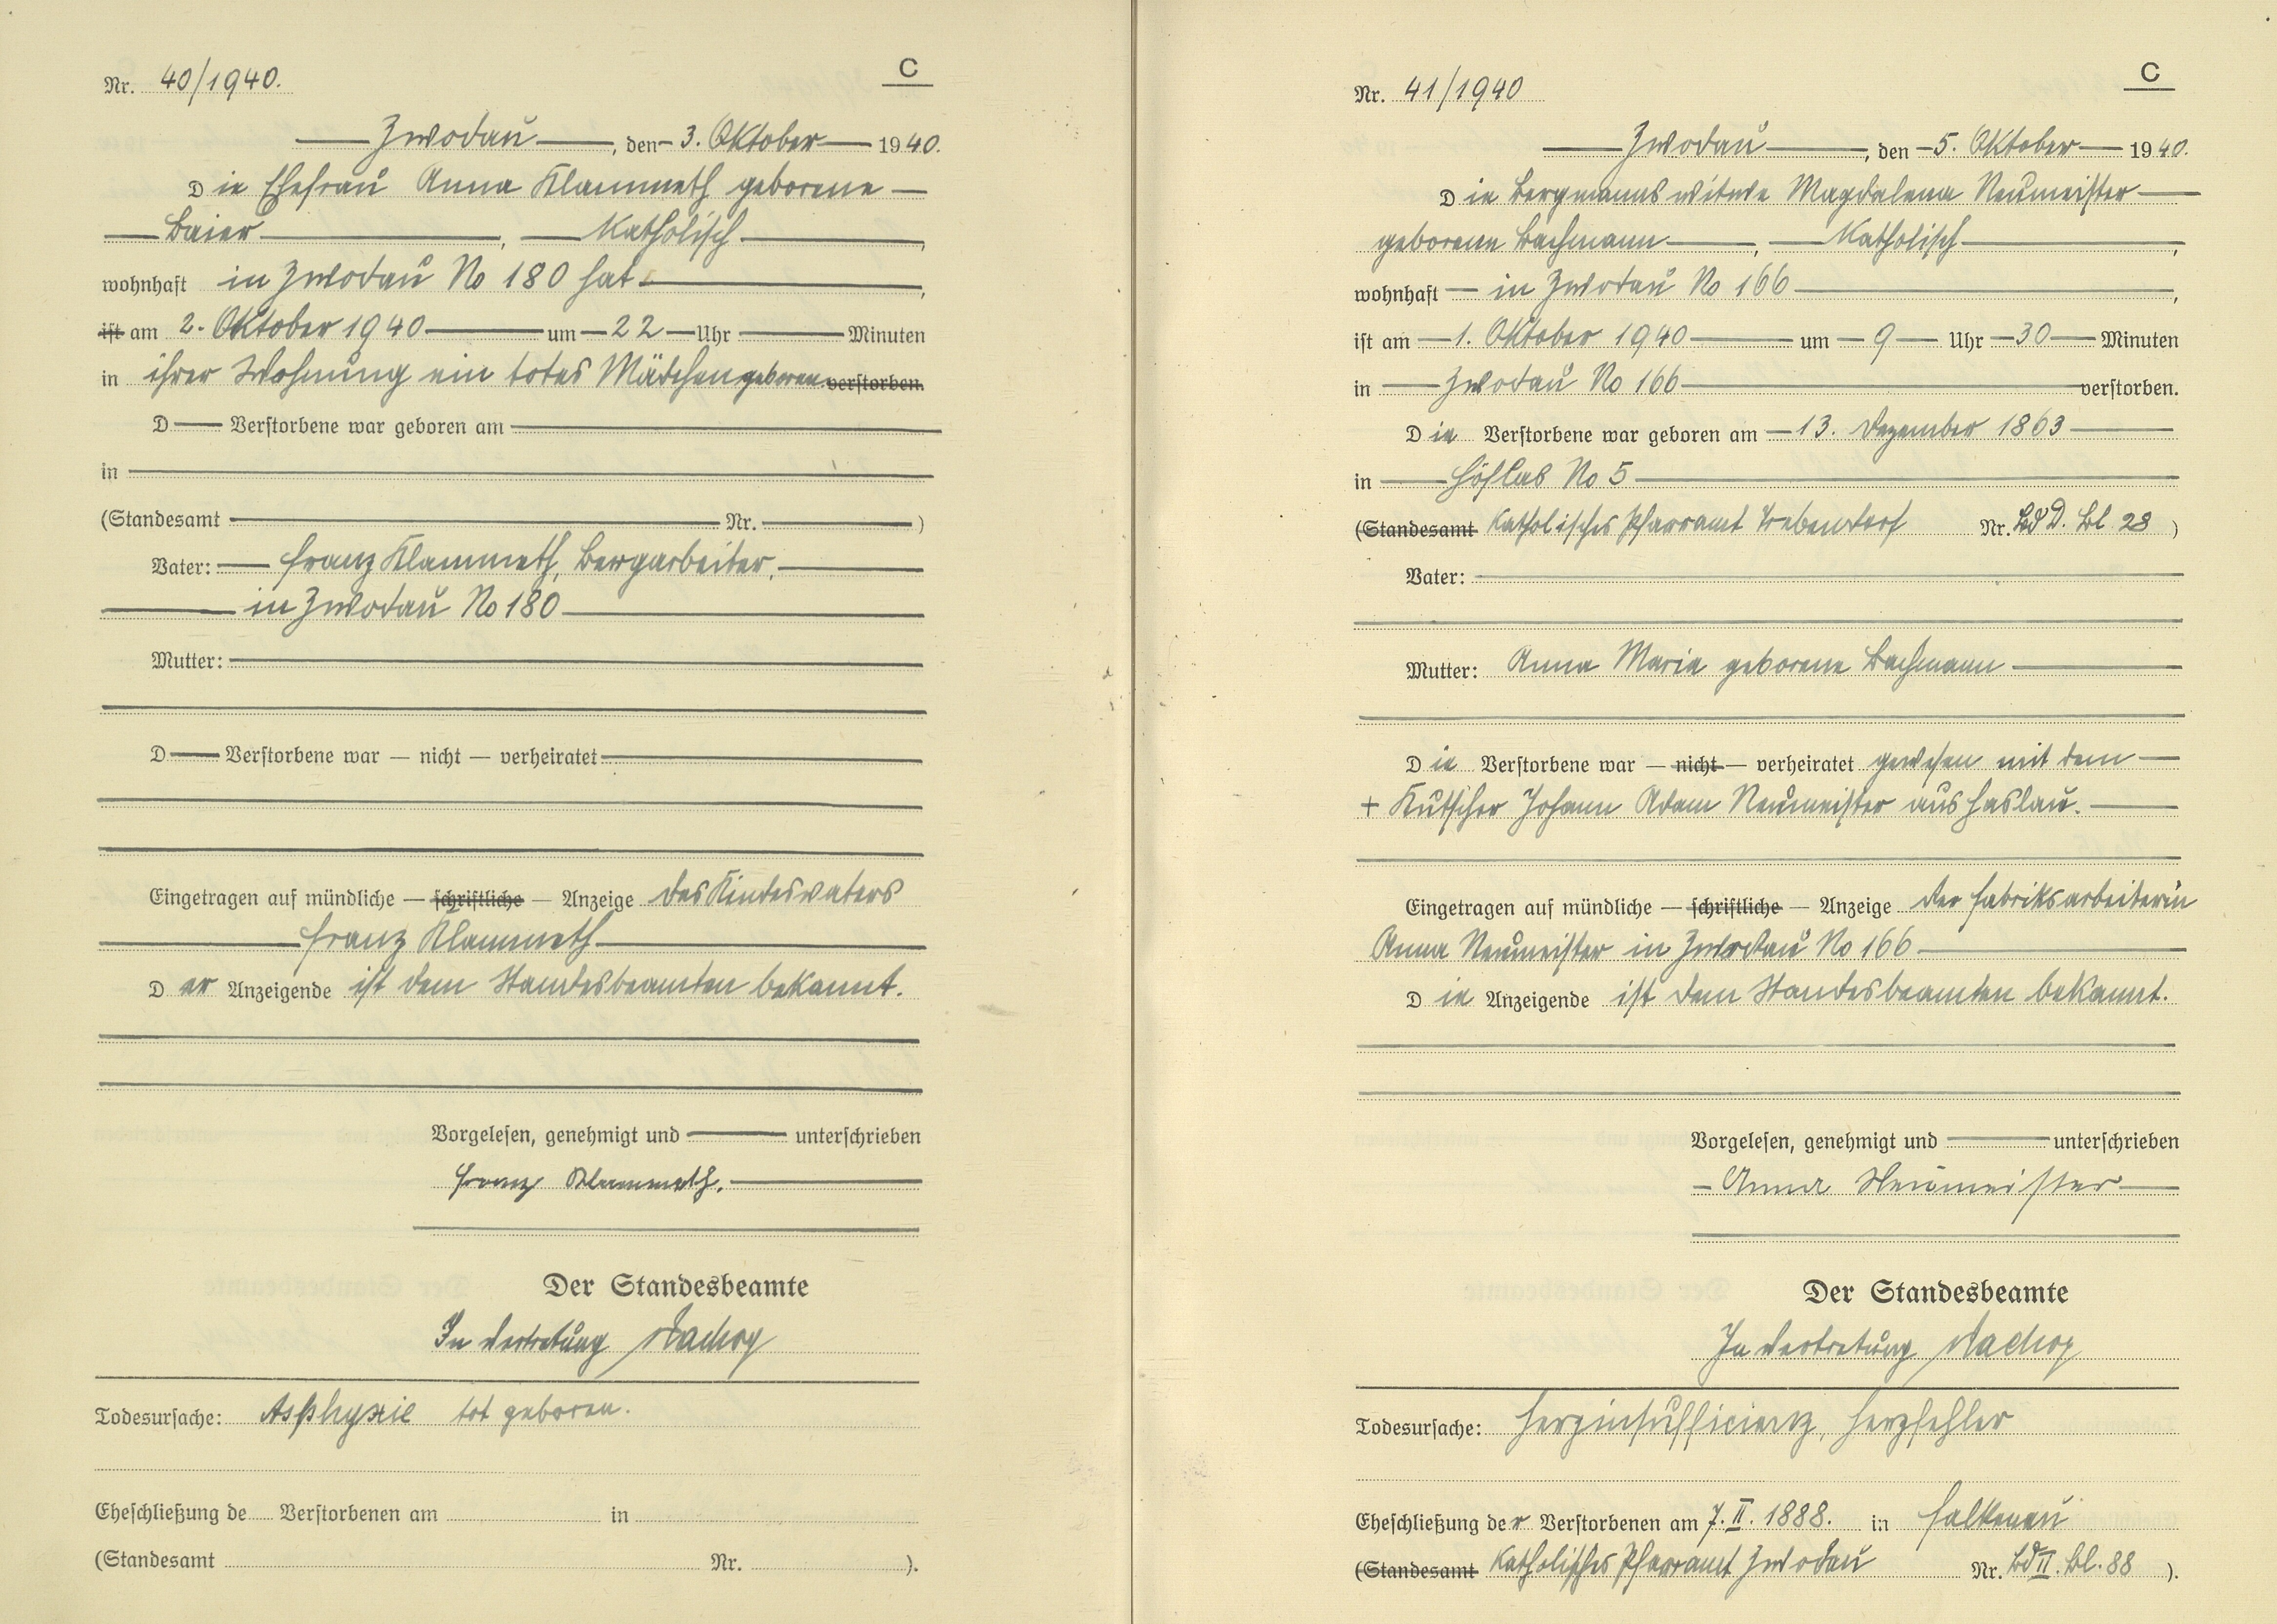 Nr. 40/1940.
C
Zwodau, den 3. Oktober 1940.
Die Ehefrau Anna Klammeth geborene
Baier, Katholisch,
wohnhaft in Zwodau No 180 hat,
ist am 2. Oktober 1940 um 22 Uhr Minuten
in ihrer Wohnung ein totes Mädchen geboren verstorben.
D Verstorbene war geboren am
in
(Standesamt Nr. )
Vater: Franz Klammeth, Bergarbeiter,
in Zwodau No 180
Mutter:
D Verstorbene war — nicht — verheiratet
Eingetragen auf mündliche — schriftliche — Anzeige des Kindesvaters
Franz Klammeth
Der Anzeigende ist dem Standesbeamten bekannt.
Vorgelesen, genehmigt und unterschrieben
Franz Klammeth.
Der Standesbeamte
In Vertretung
Todesursache: Asphyxie tot geboren.
Eheschließung de Verstorbenen am in
(Standesamt Nr. ).
Nr. 41/1940
C
Zwodau, den 5. Oktober 1940.
Die Bergmannswitwe Magdalena Neumeister
geborene Bachmann, Katholisch,
wohnhaft in Zwodau No 166,
ist am 1. Oktober 1940 um 9 Uhr 30 Minuten
in Zwodau No 166 verstorben.
Die Verstorbene war geboren am 13. Dezember 1863
in Höflas No 5
(Standesamt Katholisches Pfarramt Trebendorf Nr. Bd D. Bl. 28 )
Vater:
Mutter: Anna Maria geborene Bachmann
Die Verstorbene war — nicht — verheiratet gewesen mit dem
+ Kutscher Johann Adam Neumeister aus Haslau.
Eingetragen auf mündliche — schriftliche — Anzeige der Fabriksarbeiterin
Anna Neumeister in Zwodau No 166
Die Anzeigende ist dem Standesbeamten bekannt.
Vorgelesen, genehmigt und unterschrieben
Anna Neumeister
Der Standesbeamte
In Vertretung
Todesursache: Herzinsufficienz, Herzfehler
Eheschließung der Verstorbenen am 7. II. 1888. in Falkenau
(Standesamt Katholisches Pfarramt Zwodau Nr. Bd II. Bl. 88 ).